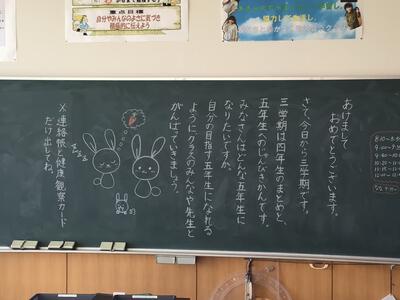 重点目標
自分やみんなのよさに気づき
積極的に伝えよう
あけまして
おめでとうございます。
さて、今日から三学期です。
三学期は四年生のまとめと、
五年生へのじゅんびきかんです。
みなさんはどんな五年生に
なりたいですか。
自分の目指す五年生になれる
ようにクラスのみんなや先生と
がんばっていきましょう。
※連絡帳と健康観察カード
だけ出してね。